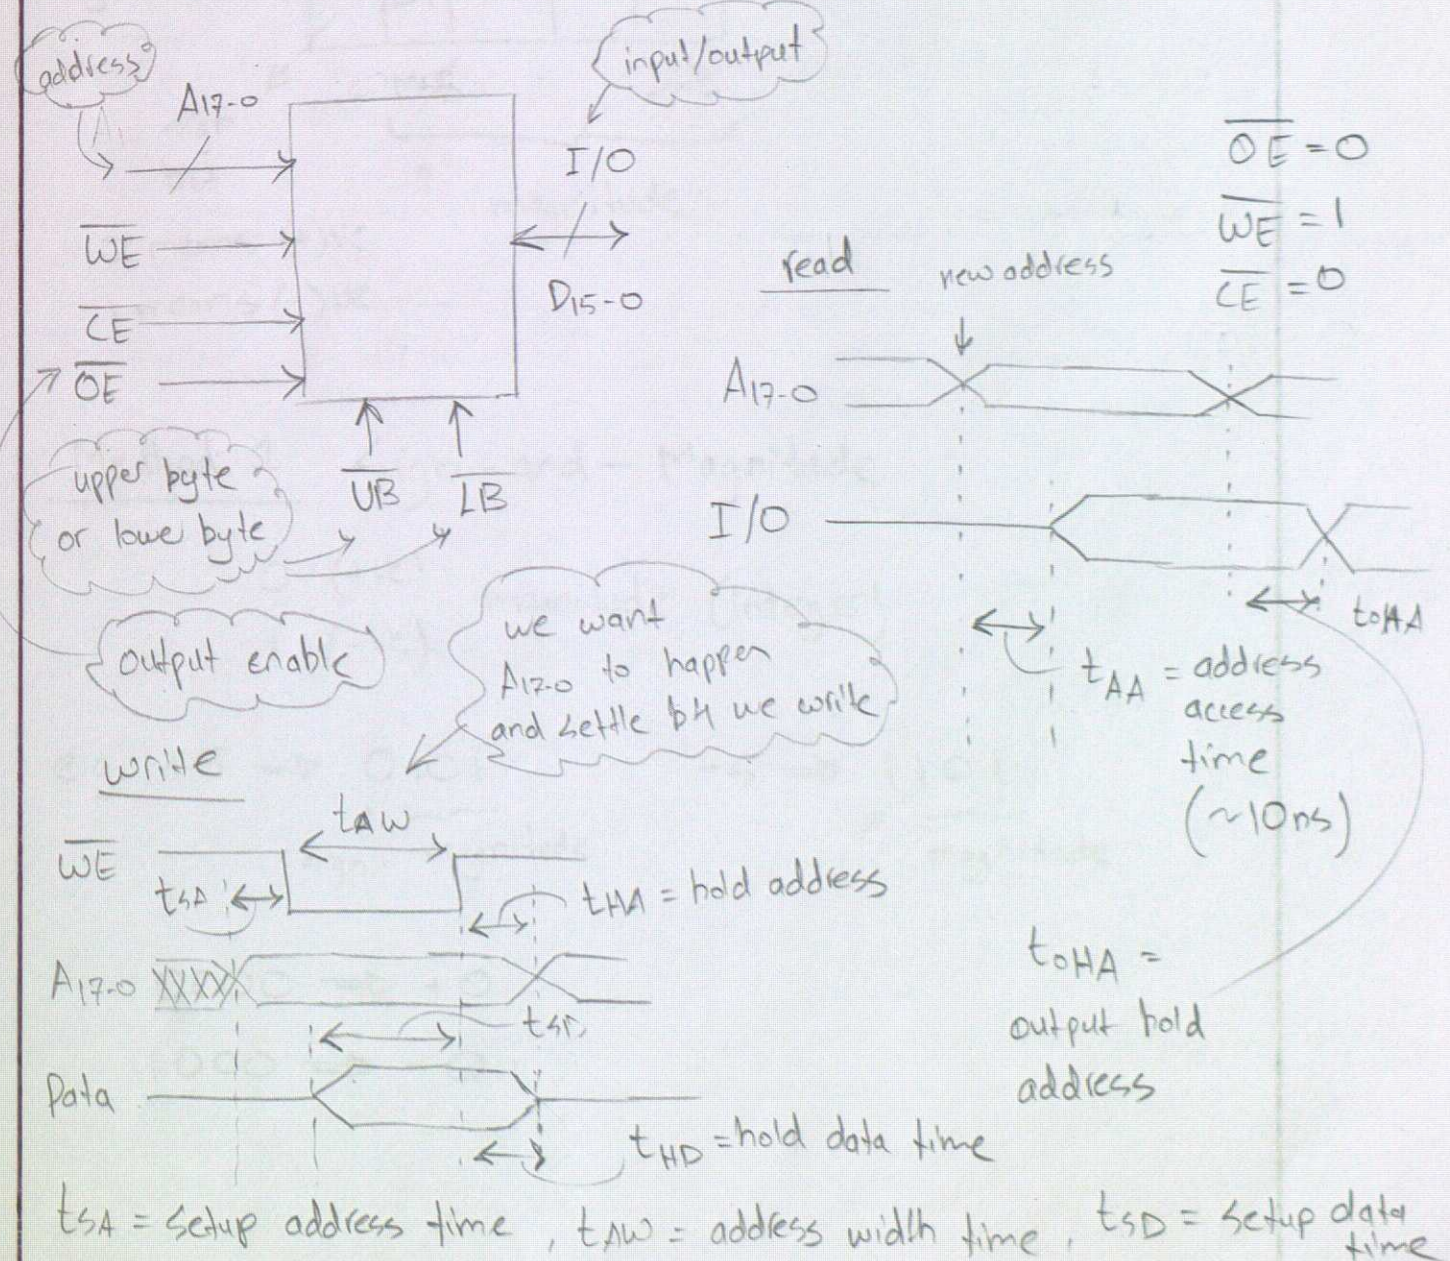 address
A17-0
input/output
I/O
D15-0
WE
CE
OE
UB
LB
upper byte
or lowe byte
output enable
OE = 0
WE = 1
CE = 0
read
new address
A17-0
I/O
tOHA
tAA = address
access
time
(~10ns)
we want
A17-0 to happen
and settle b4 we write
write
tAW
WE
tSA
tHA = hold address
A17-0 XXXX
tSD
Data
tHD = hold data time
tOHA =
output hold
address
tSA = setup address time, tAW = address width time, tSD = setup data
time